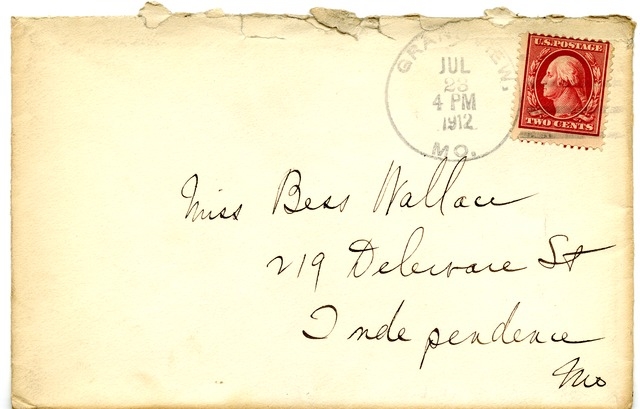 GRANDVIEW,
JUL
23
4 PM
1912
MO.
U.S. POSTAGE
TWO CENTS
Miss Bess Wallace
219 Deleware St
Independence
Mo